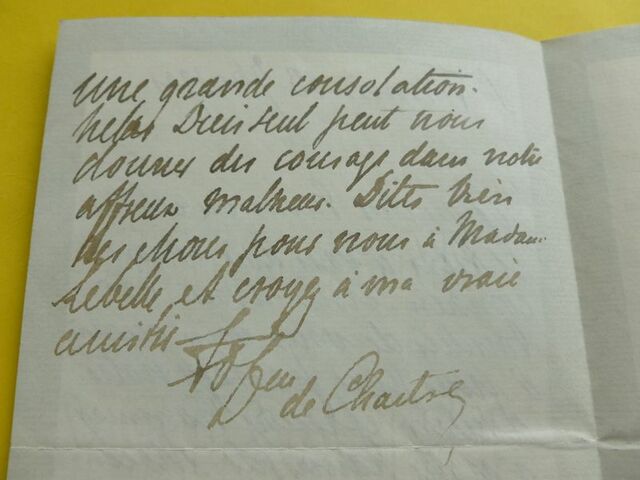 une grande consolation.
helas Dieu seul peut nous
donner du courage dans notre
affreux malheur. Dites bien
des choses pour nous à Madame
Lebelle, et croyez à ma vraie
amitié
de Chartres